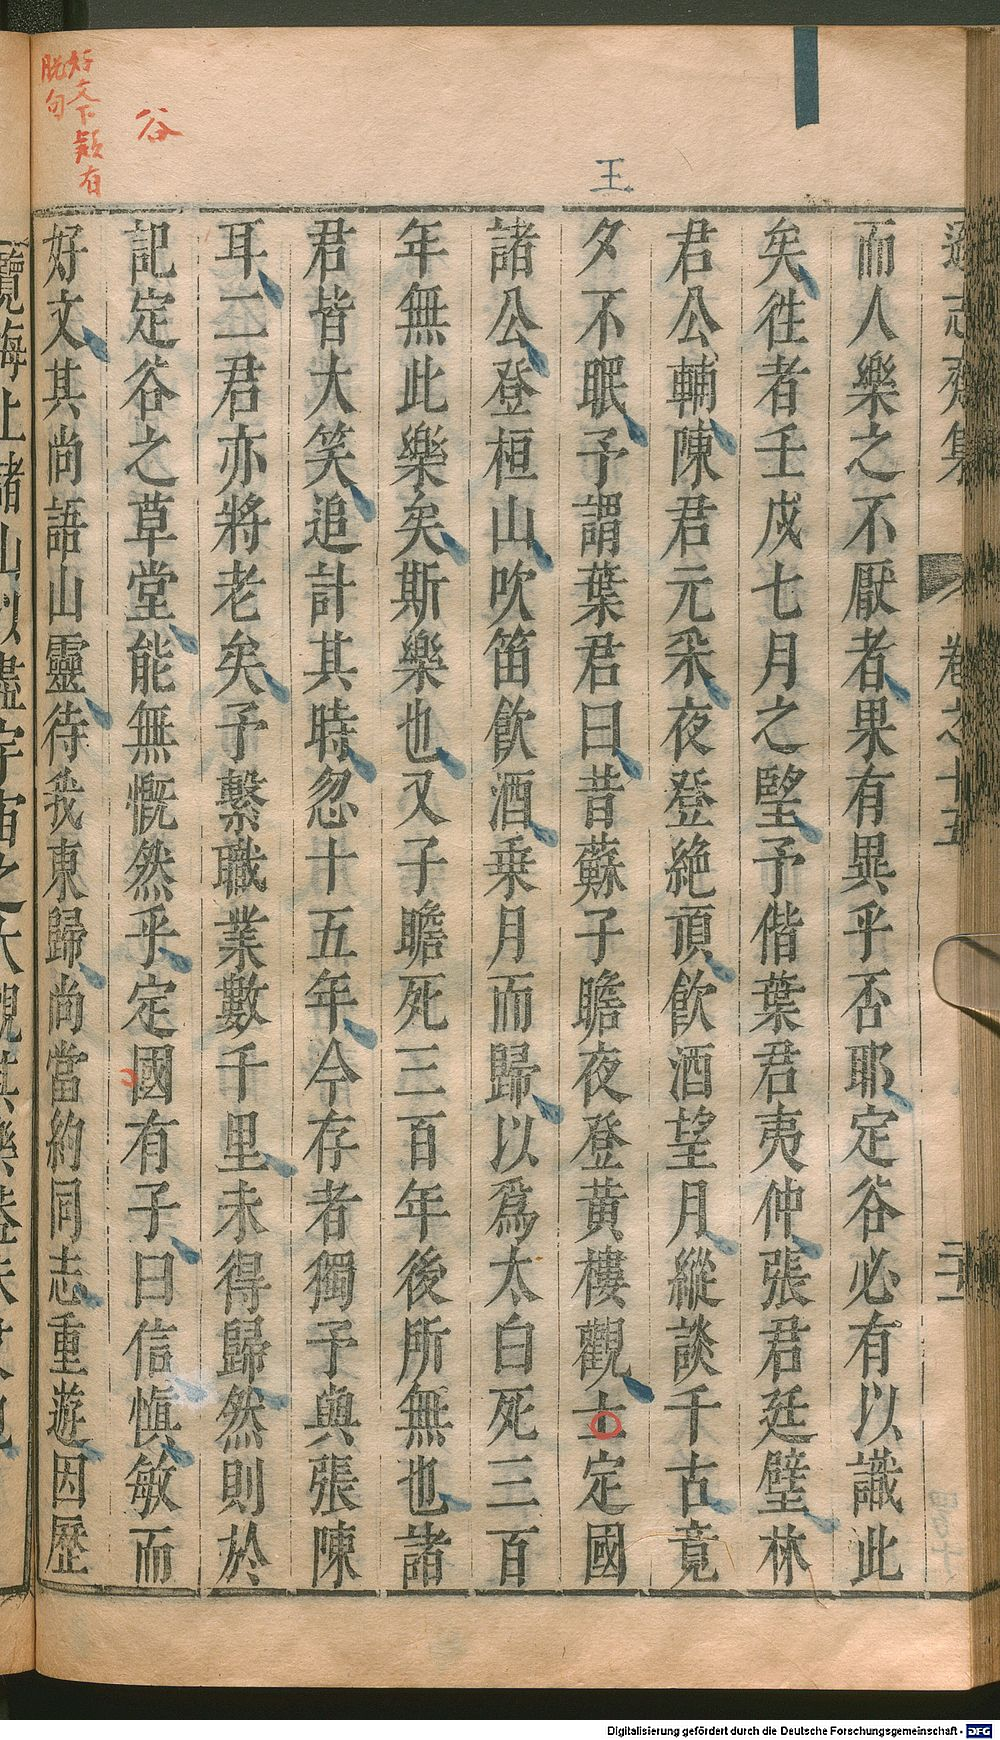 遜志齋集 卷之十五
而人樂之不厭者果有異乎否耶定谷必有以識此
矣徃者壬戍七月之朢予偕葉君夷仲張君廷璧林
君公輔陳君元采夜登絶頂飲酒望月縱談千古竟
夕不眠予謂葉君曰昔蘇子瞻夜登黃樓觀士定國
諸公登桓山吹笛飲酒乗月而歸以爲太白死三百
年無此樂矣斯樂也又子瞻死三百年後所無也諸
君皆大笑追計其時忽十五年今存者獨予與張陳
耳二君亦將老矣予繫職業數千里未得歸然則於
記定谷之草堂能無慨然乎定國有子曰信慎敏而
好文其尚語山靈待我東歸尚當約同志重遊因歷
王
谷
好文下疑有
脱句
Digitalisierung gefördert durch die Deutsche Forschungsgemeinschaft - DFG